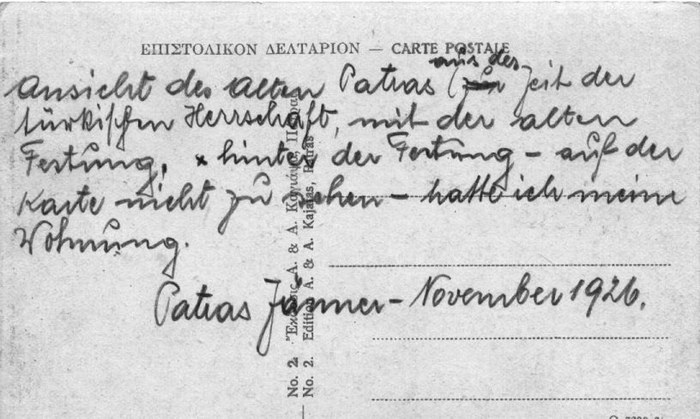 ΕΠΙΣΤΟΛΙΚΟΝ ΔΕΛΤΑΡΙΟΝ — CARTE POSTALE
Ansicht des alten Patras (aus der Zeit der
türkischen Herrschaft, mit der alten
Festung, hinter der Festung – auf der
Karte nicht zu sehen – hatte ich meine
Wohnung.
Patras Jänner – November 1926.
No. 2. Ἔκδοσις Α. & Α.
No. 2. Edition A. & A. Kajafas, Patras